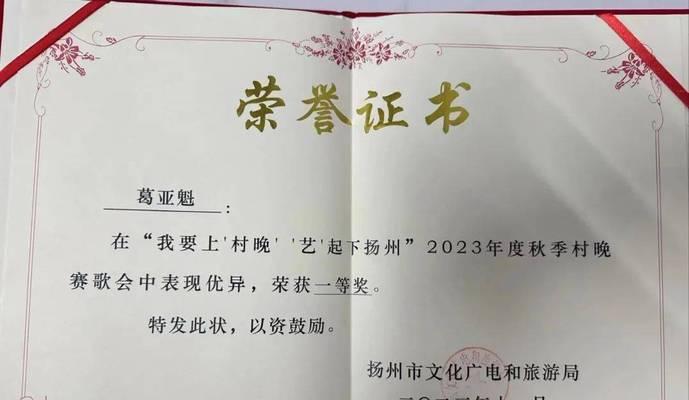 荣誉证书
葛亚魁：
在“我要上'村晚' '艺'起下扬州”2023年度秋季村晚
赛歌会中表现优异，荣获一等奖。
特发此状，以资鼓励。
扬州市文化广电和旅游局